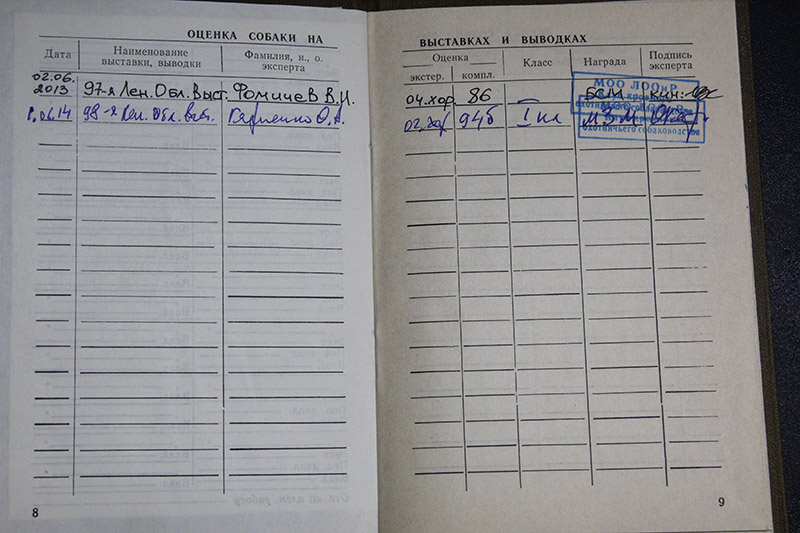 ОЦЕНКА СОБАКИ НА
Дата
Наименование выставки, выводки
Фамилия, и., о. эксперта
02.06. 2013
97-я Лен. Обл. Выст.
Фомичев В.И.
06.14
98-я Лен. Обл. Выст.
8
ВЫСТАВКАХ И ВЫВОДКАХ
Оценка
экстер.
компл.
Класс
Награда
Подпись эксперта
04. хор
86
—
БСМ
02. хор
94б
I кл
МЗМ
МОО ЛООиР
охотничьего собаководства
9